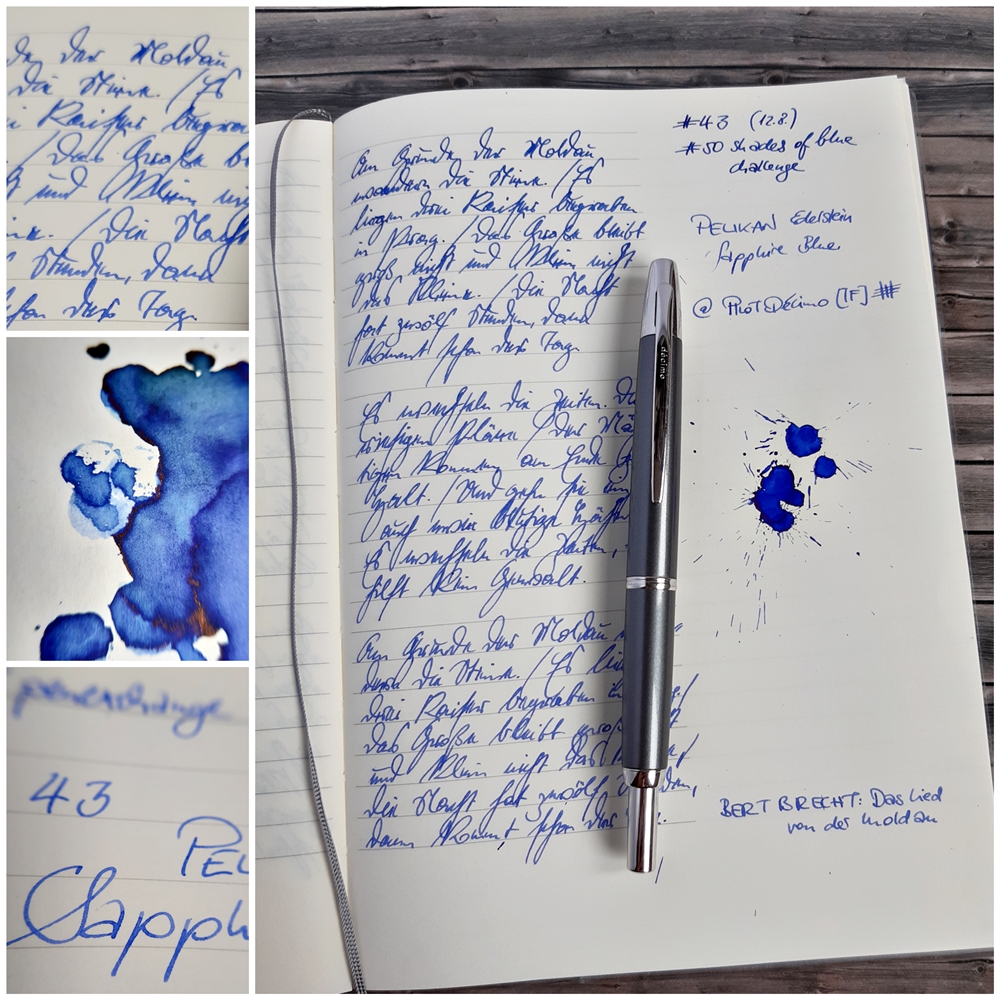 da der Moldau
die Steine. / Es
Kaiser begra
/ Das Große b
und Klein ni
/ Die Nacht
Stunden, dann
schon der Tag.
43
PEL
Sapph
Am Grunde der Moldau
wandern die Steine. / Es
liegen drei Kaiser begraben
in Prag. / Das Große bleibt
groß nicht und Klein nicht
das Kleine. / Die Nacht
hat zwölf Stunden, dann
kommt schon der Tag.
Es wechseln die Zeiten. Di
riesigen Pläne / der Mä
tigen kommen am Ende
Halt. / Und gehn sie ein
auch wie blutige Hähne
Es wechseln die Zeiten,
hilft kein Gewalt.
Am Grunde der Moldau
dern die Steine. / Es lie
drei Kaiser begraben
das Große bleibt groß
und Klein nicht das
Die Nacht hat zwölf
dann kommt schon der
#43 (12.8.)
#50 shades of blue
challenge
PELIKAN Edelstein
Sapphire Blue
@ Pilot Décimo [F]
décimo
BERT BRECHT: Das Lied
von der Moldau